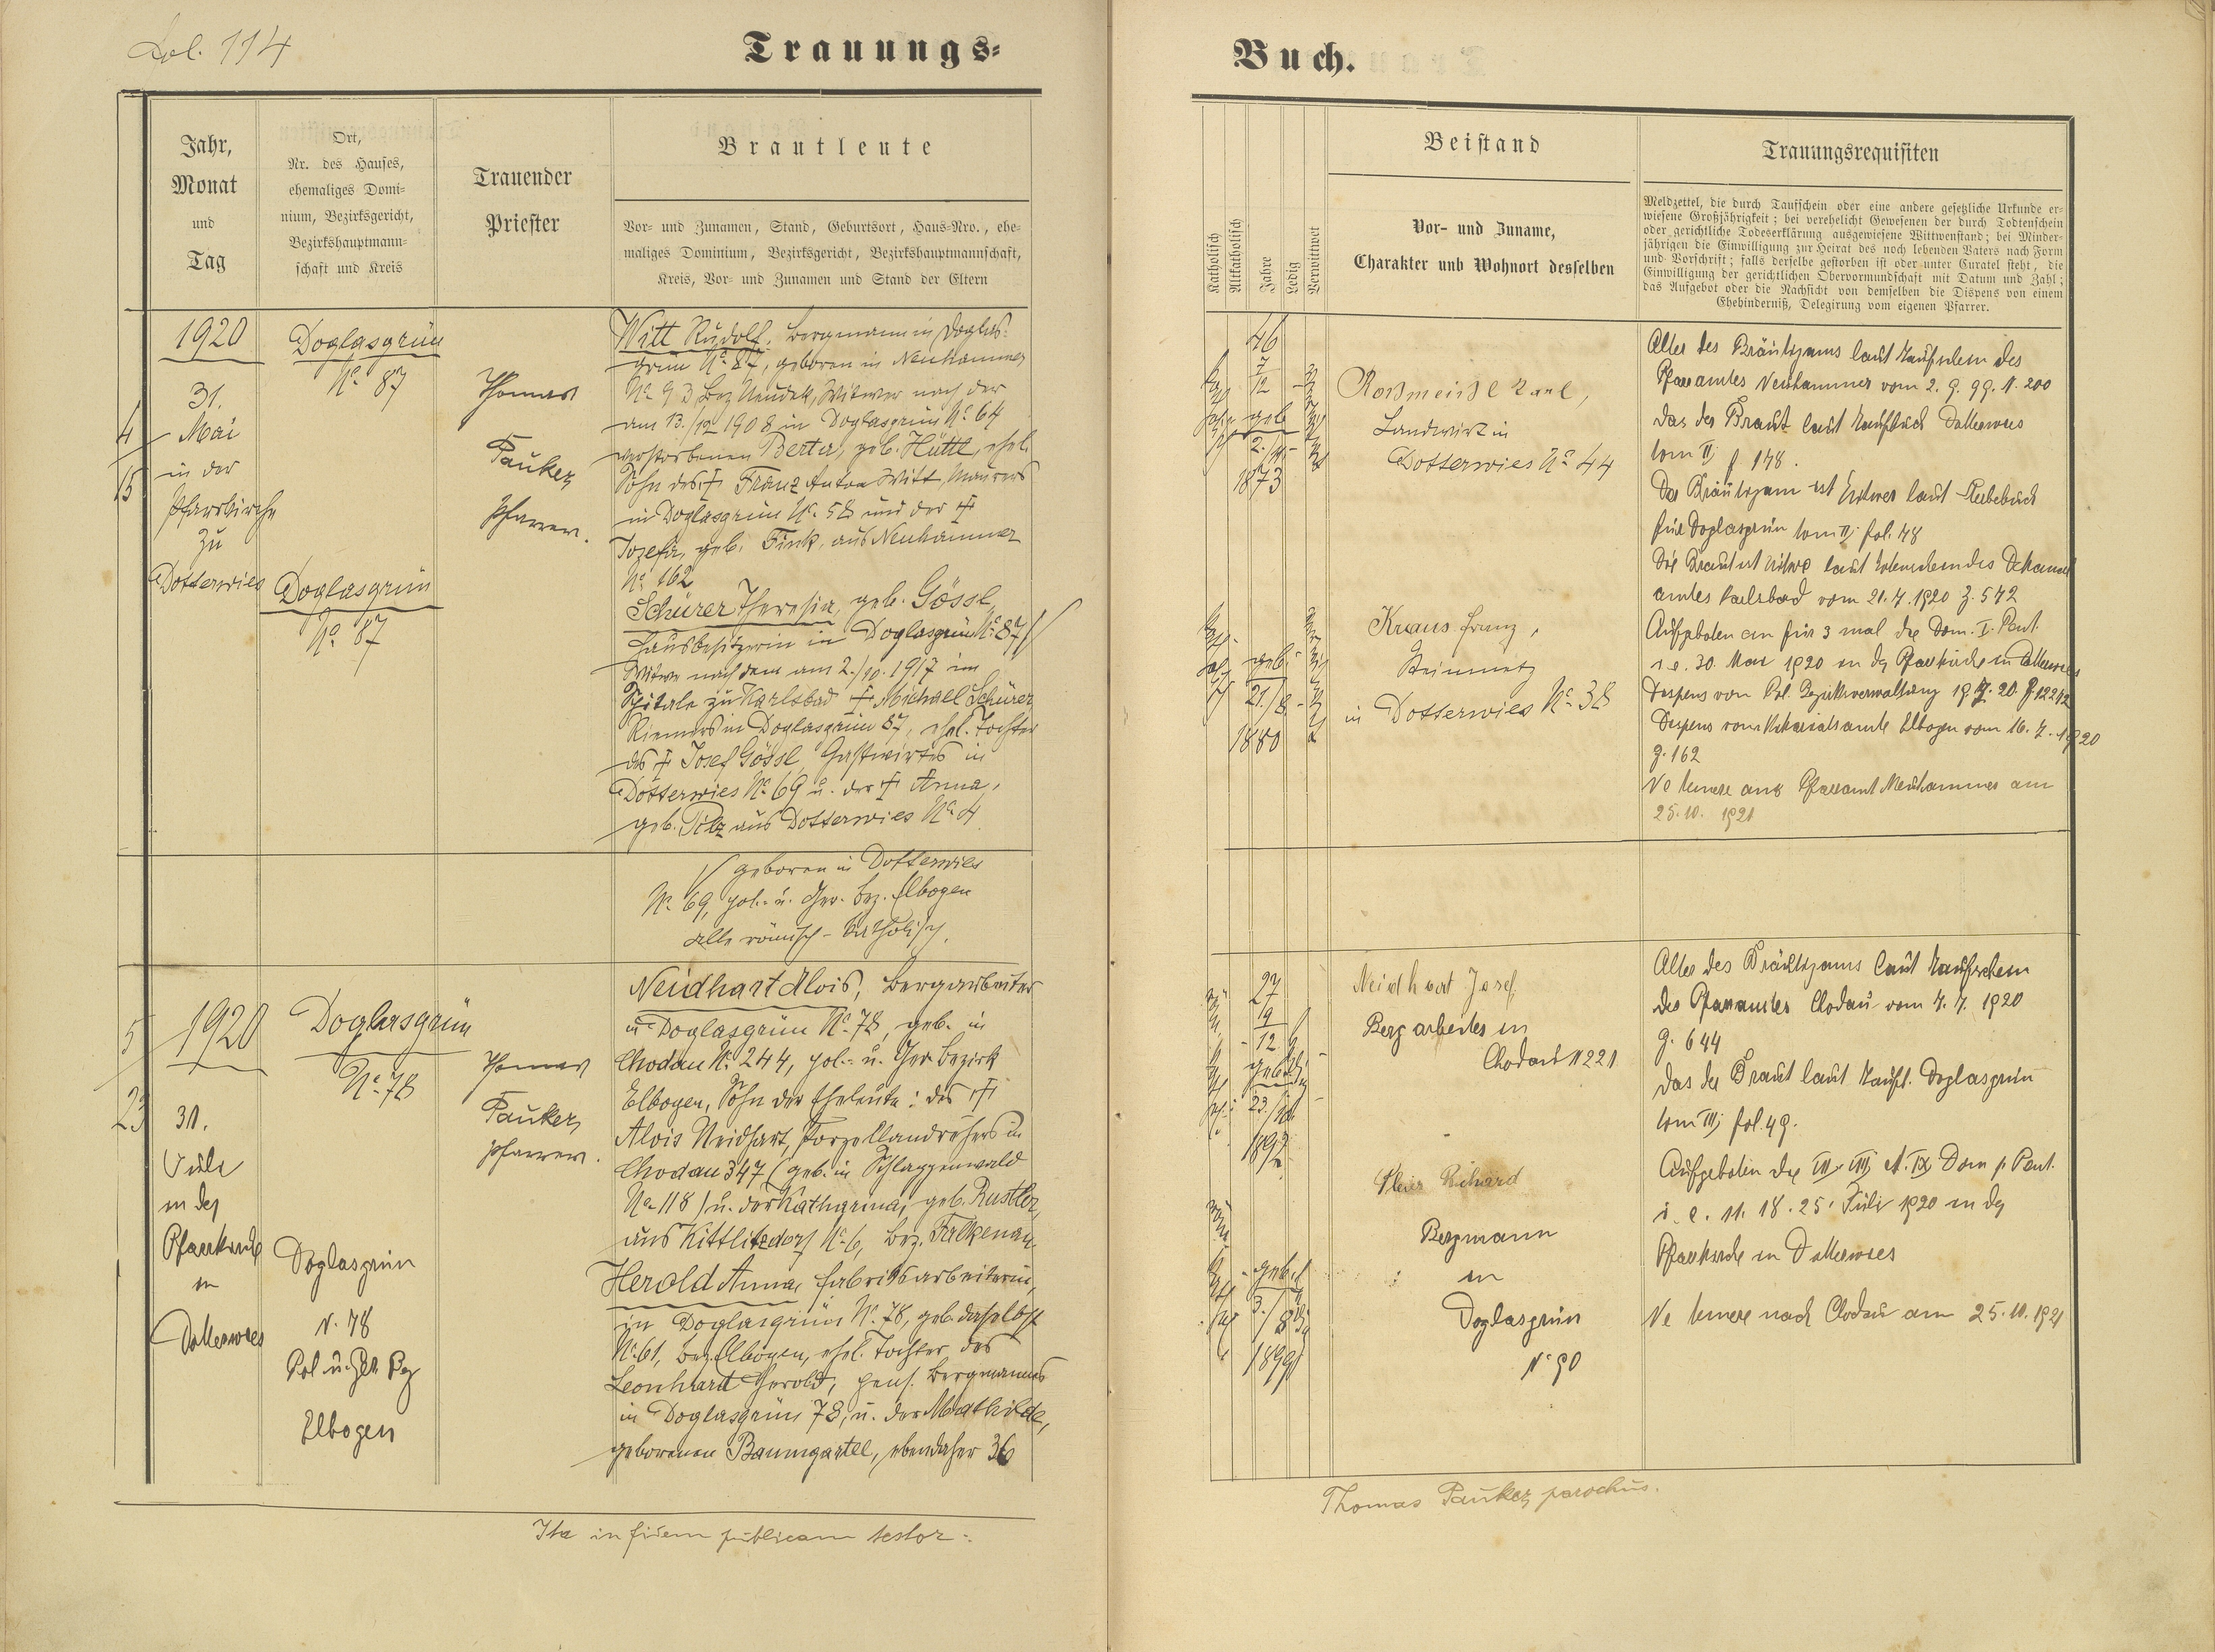 Fol. 114
Trauungs-
Jahr,
Monat
und
Tag
Ort,
Nr. des Hauses,
ehemaliges Domi-
nium, Bezirksgericht,
Bezirkshauptmann-
schaft und Kreis
Trauender
Priester
Brautleute
Vor- und Zunamen, Stand, Geburtsort, Haus-Nro., ehe-
maliges Dominium, Bezirksgericht, Bezirkshauptmannschaft,
Kreis, Vor- und Zunamen und Stand der Eltern
4
15
1920
31.
Mai
in der
Pfarrkirche
zu
Dotterwies
Doglasgrün
No 87
Doglasgrün
No 87
Thomas
Pauker,
Pfarrer.
Witt Rudolf, Bergmann in Doglas-
grün No 87, geboren in Neuhammer
No 93 Bez Neudek, Witwer nach der
am 13./12 1908 in Doglasgrün No 64
verstorbenen Berta, geb. Hüttl, ehel.
Sohn des † Franz Anton Witt, Maurers
in Doglasgrün No 58 und der †
Josefa, geb. Fink, aus Neuhammer
No 162
Schürer Theresia, geb. Gössl,
Hausbesitzerin in Doglasgrün No 87 //
Witwe nach dem am 2./10. 1917 im
Spitale zu Karlsbad † Michael Schürer
Riemers in Doglasgrün 87, ehel. Tochter
des † Josef Gössl, Gastwirtes in
Dotterwies No 69 u. der † Anna,
geb. Pilz aus Dotterwies No 4
// geboren in Dotterwies
No 69, pol.- u. Ger. bez. Elbogen
alle römisch-katholisch.
5
23
1920
31.
Juli
in der
Pfarrkirche
in
Dotterwies
Doglasgrün
No 78
Doglasgrün
N. 78
Pol u. Ger. Bz
Elbogen
Thomas
Pauker,
Pfarrer.
Neidhart Alois, Bergarbeiter
in Doglasgrün No 78, geb. in
Chodau No 244, pol.- u. Ger. Bezirk
Elbogen, Sohn der Eheleute: des †
Alois Neidhart, Porzellandrehers in
Chodau 347 (geb. in Schlaggenwald
No 118) u. der Katharina, geb. Rustler,
aus Kittlitzdorf No 6, Bez. Falkenau
Herold Anna, Fabriksarbeiterin,
in Doglasgrün No 78, geb. daselbst
No 61, Bez. Elbogen, ehel. Tochter des
Leonhard Herold, pens. Bergmannes
in Doglasgrün 78, u. der Mathilde,
geborenen Baumgartl, ebendaher 36
Ita in fidem publicam testor:
Buch.
Katholisch
Altkatholisch
Jahre
Ledig
Verwittwet
Beistand
Vor- und Zuname,
Charakter und Wohnort desselben
Trauungsrequisiten
Meldzettel, die durch Taufschein oder eine andere gesetzliche Urkunde er-
wiesene Großjährigkeit; bei verehelicht Gewesenen der durch Todtenschein
oder gerichtliche Todeserklärung ausgewiesene Wittwenstand; bei Minder-
jährigen die Einwilligung zur Heirat des noch lebenden Vaters nach Form
und Vorschrift; falls derselbe gestorben ist oder unter Curatel steht, die
Einwilligung der gerichtlichen Obervormundschaft mit Datum und Zahl;
das Aufgebot oder die Nachsicht von demselben die Dispens von einem
Ehehinderniß, Delegirung vom eigenen Pfarrer.
46
7
12
geb
1873
Roßmeisl Karl,
Landwirt in
Dotterwies No 44
geb.
21./8
1880
Kraus Franz,
Steinmetz
in Dotterwies No 38
Alter des Bräutigams laut Taufschein des
Pfarramtes Neuhammer vom 2. 9. 99. N. 200
das der Braut laut Taufbuch Dotterwies
tom II f. 178.
Der Bräutigam ist Witwer laut Sterbebuch
für Doglasgrün tom II, fol. 48
Die Braut ist Witwe laut Totenschein des Dekanal
amtes Karlsbad vom 21. 4. 1920 Z. 572
Aufgeboten ein für 3 mal die Dom. I. Pent.
i. e. 30. Mai 1920 in der Pfarrkirche in Dotterwies
Dispens von Pol. Bezirksverwaltung
Dispens vom Vikariatsamte Elbogen vom 16. 4. 1920
Z. 162
Ne temere ans Pfarramt Neuhammer am
25. 10. 1921
27
19
12
geb.
1892
Neidhart Josef,
Bergarbeiter in
Chodau N 221
geb.
3./8
1899
Richard
Bergmann
in
Doglasgrün
N. 90
Alter des Bräutigams laut Taufschein
des Pfarramtes Chodau vom 7. 7. 1920
Z. 644
das der Braut laut Taufb. Doglasgrün
tom III, fol. 49.
Aufgeboten die VII. VIII et. IX Dom p. Pent.
i. e. 11. 18. 25. Juli 1920 in der
Pfarrkirche in Dotterwies
Ne temere nach Chodau am 25. 10. 1921
Thomas Pauker, parochus.